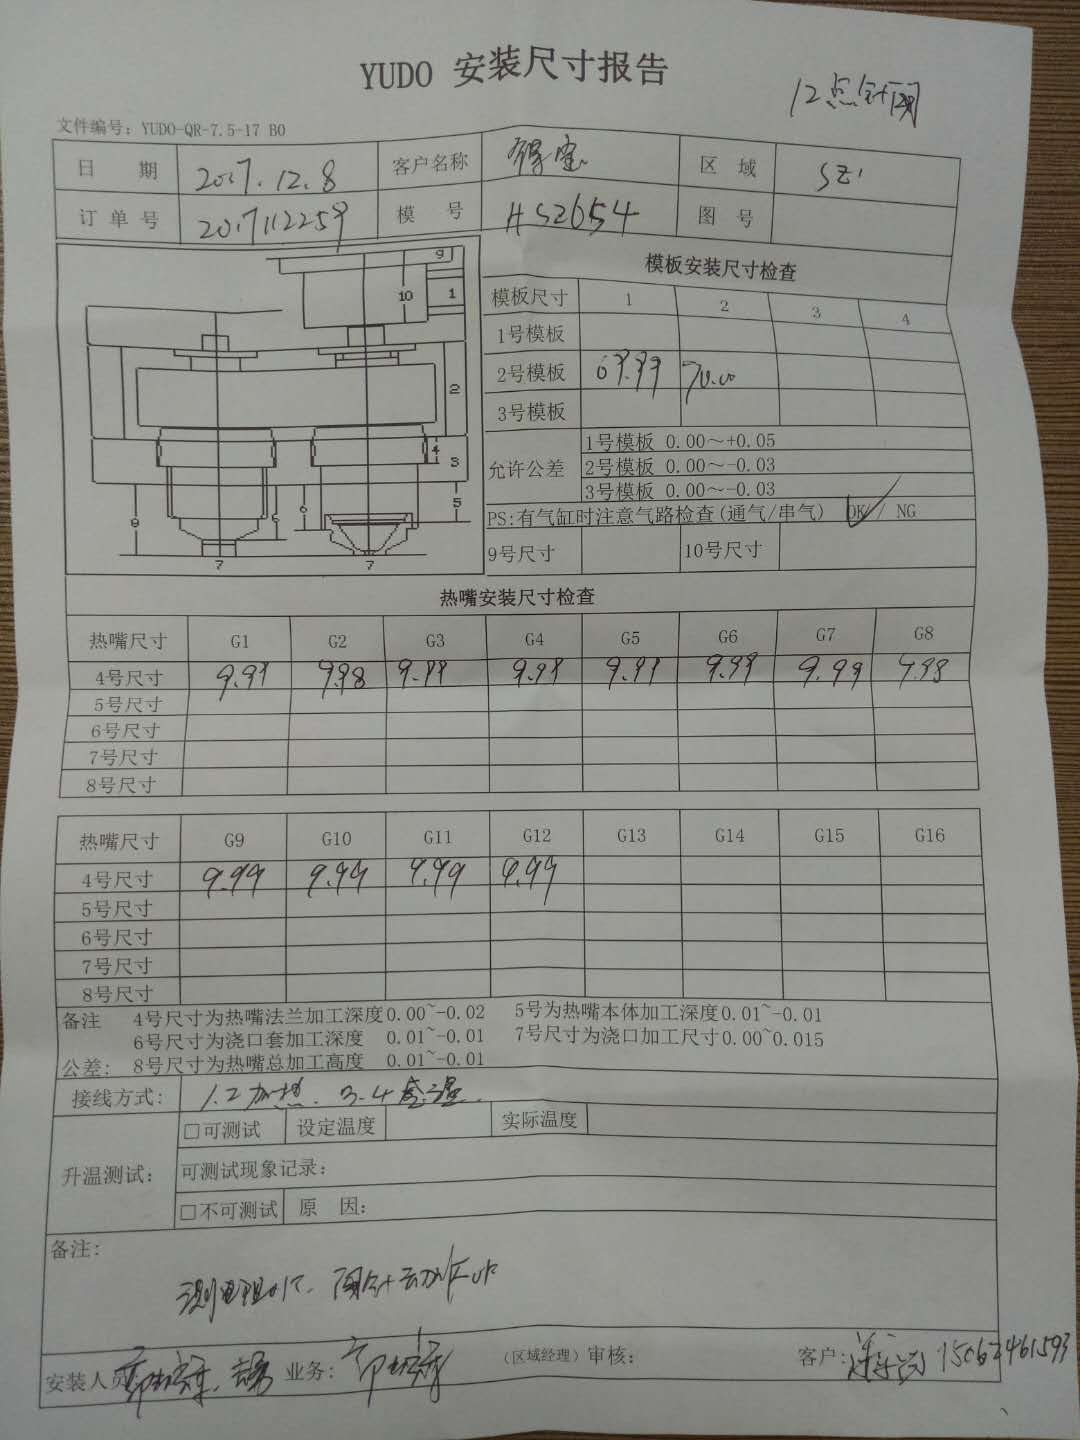 YUDO 安装尺寸报告
12点针阀
文件编号: YUDO-QR-7.5-17 B0
日 期 2017.12.8 客户名称 区 域 SZ1
订 单 号 2017112259 模 号 HS2654 图 号
模板安装尺寸检查
模板尺寸 1 2 3 4
1号模板
2号模板 69.99 70.00
3号模板
允许公差 1号模板 0.00~+0.05
2号模板 0.00~-0.03
3号模板 0.00~-0.03
PS:有气缸时注意气路检查(通气/串气) OK / NG
9号尺寸 10号尺寸
9
10 1
2
4
3
8 6 6 5
7 7
热嘴安装尺寸检查
热嘴尺寸 G1 G2 G3 G4 G5 G6 G7 G8
4号尺寸 9.99 9.98 9.99 9.99 9.99 9.99 9.99 9.98
5号尺寸
6号尺寸
7号尺寸
8号尺寸
热嘴尺寸 G9 G10 G11 G12 G13 G14 G15 G16
4号尺寸 9.99 9.99 9.99 9.99
5号尺寸
6号尺寸
7号尺寸
8号尺寸
备注 4号尺寸为热嘴法兰加工深度0.00~-0.02 5号为热嘴本体加工深度0.01~-0.01
6号尺寸为浇口套加工深度 0.01~-0.01 7号尺寸为浇口加工尺寸0.00~0.015
公差: 8号尺寸为热嘴总加工高度 0.01~-0.01
接线方式: 1.2加热. 3.4感温.
升温测试: □可测试 设定温度 实际温度
可测试现象记录:
□不可测试 原 因:
备注:
测电阻OK. 阀针动作OK
安装人员 业务: (区域经理)审核: 客户: 15062461593